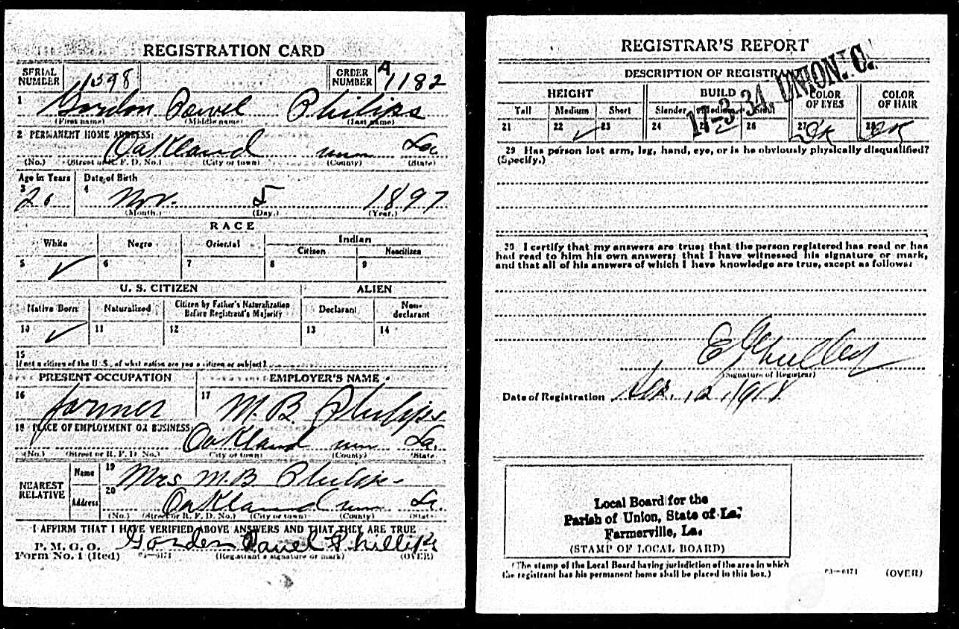 REGISTRATION CARD
SERIAL NUMBER 1598 ORDER NUMBER A 1182
1 Gordon Powel Philips
(First name) (Middle name) (Last name)
2 PERMANENT HOME ADDRESS:
Oakland La
(No.) (Street or R. F. D. No.) (City or town) (County) (State)
Age in Years Date of Birth
3 20 4 Nov. 5 1897
(Month.) (Day.) (Year.)
RACE
White Negro Oriental Indian
Citizen Noncitizen
5 ✓ 6 7 8 9
U. S. CITIZEN ALIEN
Native Born Naturalized Citizen by Father's Naturalization Before Registrant's Majority Declarant Non-declarant
10 ✓ 11 12 13 14
15
If not a citizen of the U. S., of what nation are you a citizen or subject?
PRESENT OCCUPATION EMPLOYER'S NAME
16 farmer 17 M. B. Philips
18 PLACE OF EMPLOYMENT OR BUSINESS:
Oakland La.
(No.) (Street or R. F. D. No.) (City or town) (County) (State)
NEAREST RELATIVE Name 19 Mrs M. B. Philips
Address 20 Oakland La.
(No.) (Street or R. F. D. No.) (City or town) (County) (State)
I AFFIRM THAT I HAVE VERIFIED ABOVE ANSWERS AND THAT THEY ARE TRUE
P. M. G. O.
Form No. 1 (Red) Gorden Phillips
(Registrant's signature or mark) (OVER)
REGISTRAR'S REPORT
17-3-34, UNION. C.
DESCRIPTION OF REGISTRANT
HEIGHT BUILD COLOR OF EYES COLOR OF HAIR
Tall Medium Short Slender Medium
21 22 ✓ 23 24 26 27 DK 28 DK
29 Has person lost arm, leg, hand, eye, or is he obviously physically disqualified?
(Specify.)
30 I certify that my answers are true; that the person registered has read or has
had read to him his own answers; that I have witnessed his signature or mark,
and that all of his answers of which I have knowledge are true, except as follows:
(Signature of Registrar)
Date of Registration 12, 1918
Local Board for the
Parish of Union, State of La.
Farmerville, La.
(STAMP OF LOCAL BOARD)
(The stamp of the Local Board having jurisdiction of the area in which
the registrant has his permanent home shall be placed in this box.)
03-6171 (OVER)